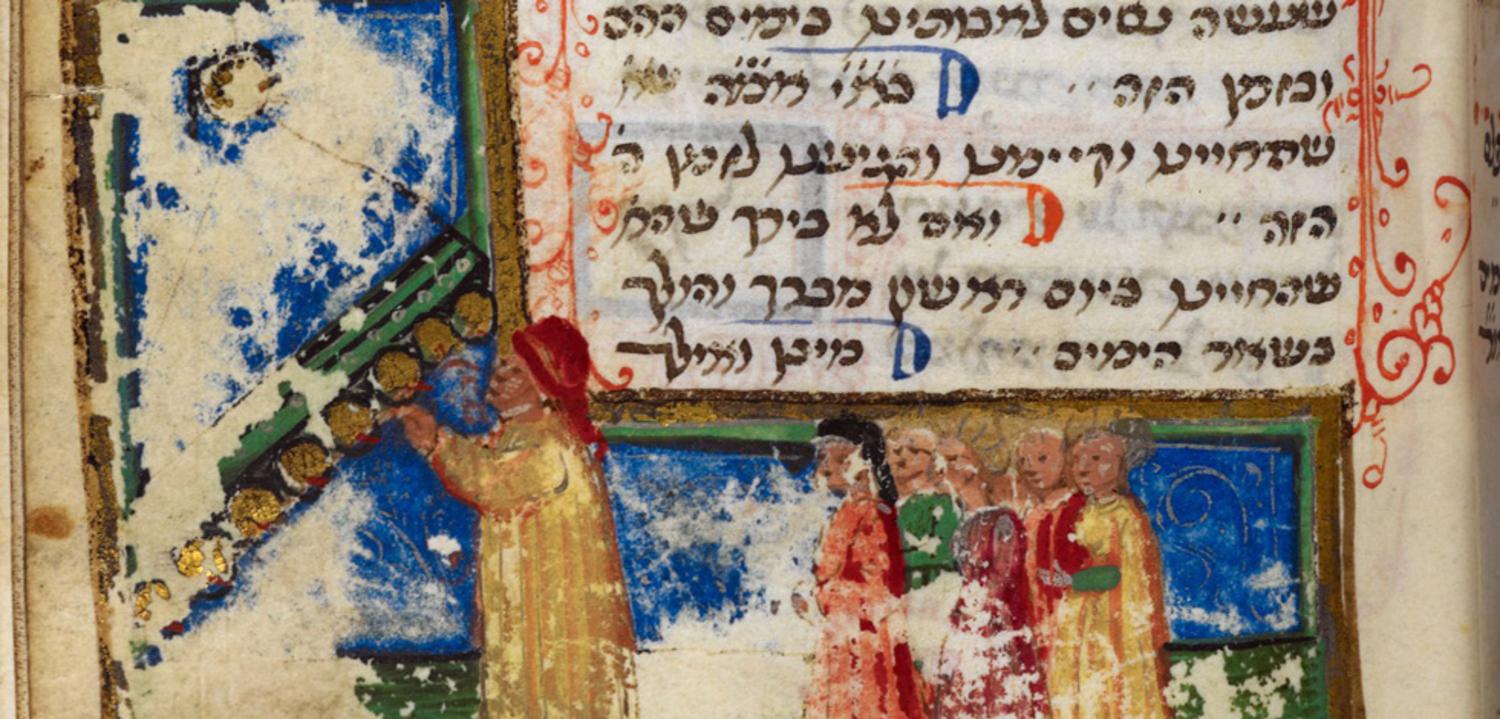 שעשה נסים לאבותינו בימים ההם
ובזמן הזה ·· בא׳י׳ אמ׳ה׳
שהחיינו וקיימנו והגיענו לזמן ה
הזה ·· ואם לא בירך שהח
שהחיינו ביום ראשון מברך והולך
בשאר הימים מיכן ואילך